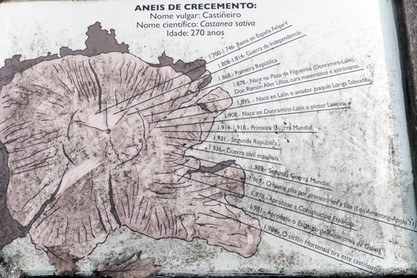 ANEIS DE CRECEMENTO:
Nome vulgar: Castiñeiro
Nome científico: Castanea sativa
Idade: 270 anos
1.700-1.746- Reina en España Felipe V.
1.808-1.814- Guerra da Independencia.
1.868 - Primeira República.
1.878 - Nace no Pazo de Filgueiroa (Dorramiro-Lalín),
Don Ramón Aller Ulloa, cura matemático e astrónomo.
1.895 - Nace en Lalín o aviador Joaquín Loriga Taboada.
1.908 - Nace en Dorramiro-Lalín o pintor Laxeiro.
1.914-1.918 - Primeira Guerra Mundial.
1.931 - Segunda República.
1.936 - Guerra civil española.
1.939 - Segunda Guerra Mundial.
1.969 - O home pisa por primeira vez a lúa
1.978 - Apróbase a Constitución Española.
1.981 - Apróbase o Estatuto de Autonomía de Galicia.
O ciclón Hortensia tira este castiñeiro.